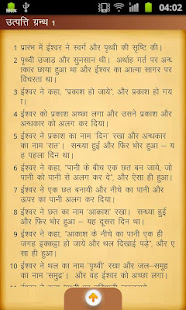 04:02
उत्पत्ति ग्रन्थ 1
1 प्रारंभ में ईश्वर ने स्वर्ग और पृथ्वी की सृष्टि की।
2 पृथ्वी उजाड़ और सुनसान थी। अथार्ह गर्त पर अन्ध
कार छाया हुआ था और ईश्वर का आत्मा सागर पर
विचरता था।
3 ईश्वर ने कहा, "प्रकाश हो जाये", और प्रकाश हो ग
या।
4 ईश्वर को प्रकाश अच्छा लगा और उसने प्रकाश और
अन्धकार को अलग कर दिया।
5 ईश्वर ने प्रकाश का नाम 'दिन' रखा और अन्धका
र का नाम 'रात'। सन्ध्या हुई और फिर भोर हुआ - य
ह पहला दिन था।
6 ईश्वर ने कहा, "पानी के बीच एक छत बन जाये, जो
पानी को पानी से अलग कर दे", और ऐसा ही हो ग
या।
7 ईश्वर ने एक छत बनायी और नीचे का पानी और
ऊपर का पानी अलग कर दिया।
8 ईश्वर ने छत का नाम 'आकाश' रखा। सन्ध्या हुई
और फिर भोर हुआ - यह दूसरा दिन था।
9 ईश्वर ने कहा, "आकाश के नीचे का पानी एक ही
जगह इकट्ठा हो जाये और थल दिखाई पड़े", और ऐ
सा ही हो गया।
10 ईश्वर ने थल का नाम 'पृथ्वी' रखा और जल-समूह
का नाम 'समुद्र'। और वह ईश्वर को अच्छा लगा।